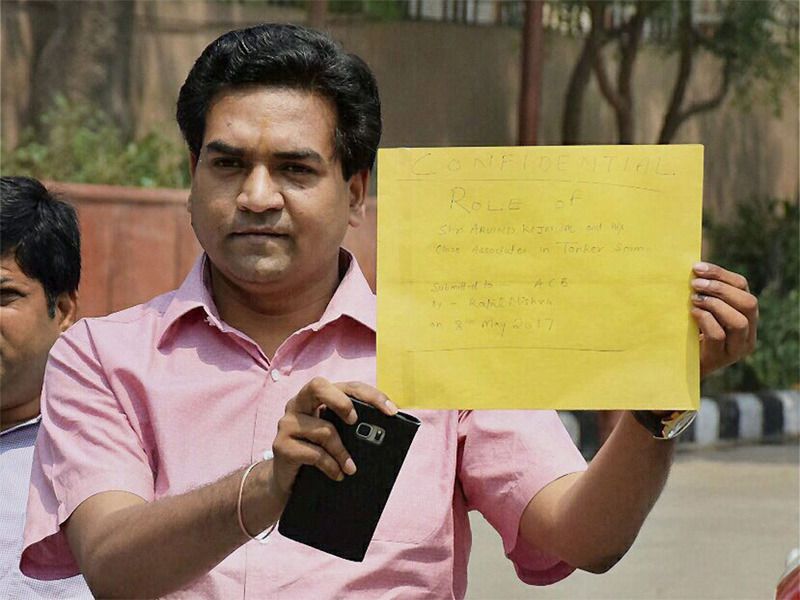 CONFIDENTIAL
ROLE of
Shri ARVIND KEJRIWAL and his
Close Associates in Tanker Scam.
Submitted to - ACB
by - Kapil Mishra
on 8th May 2017